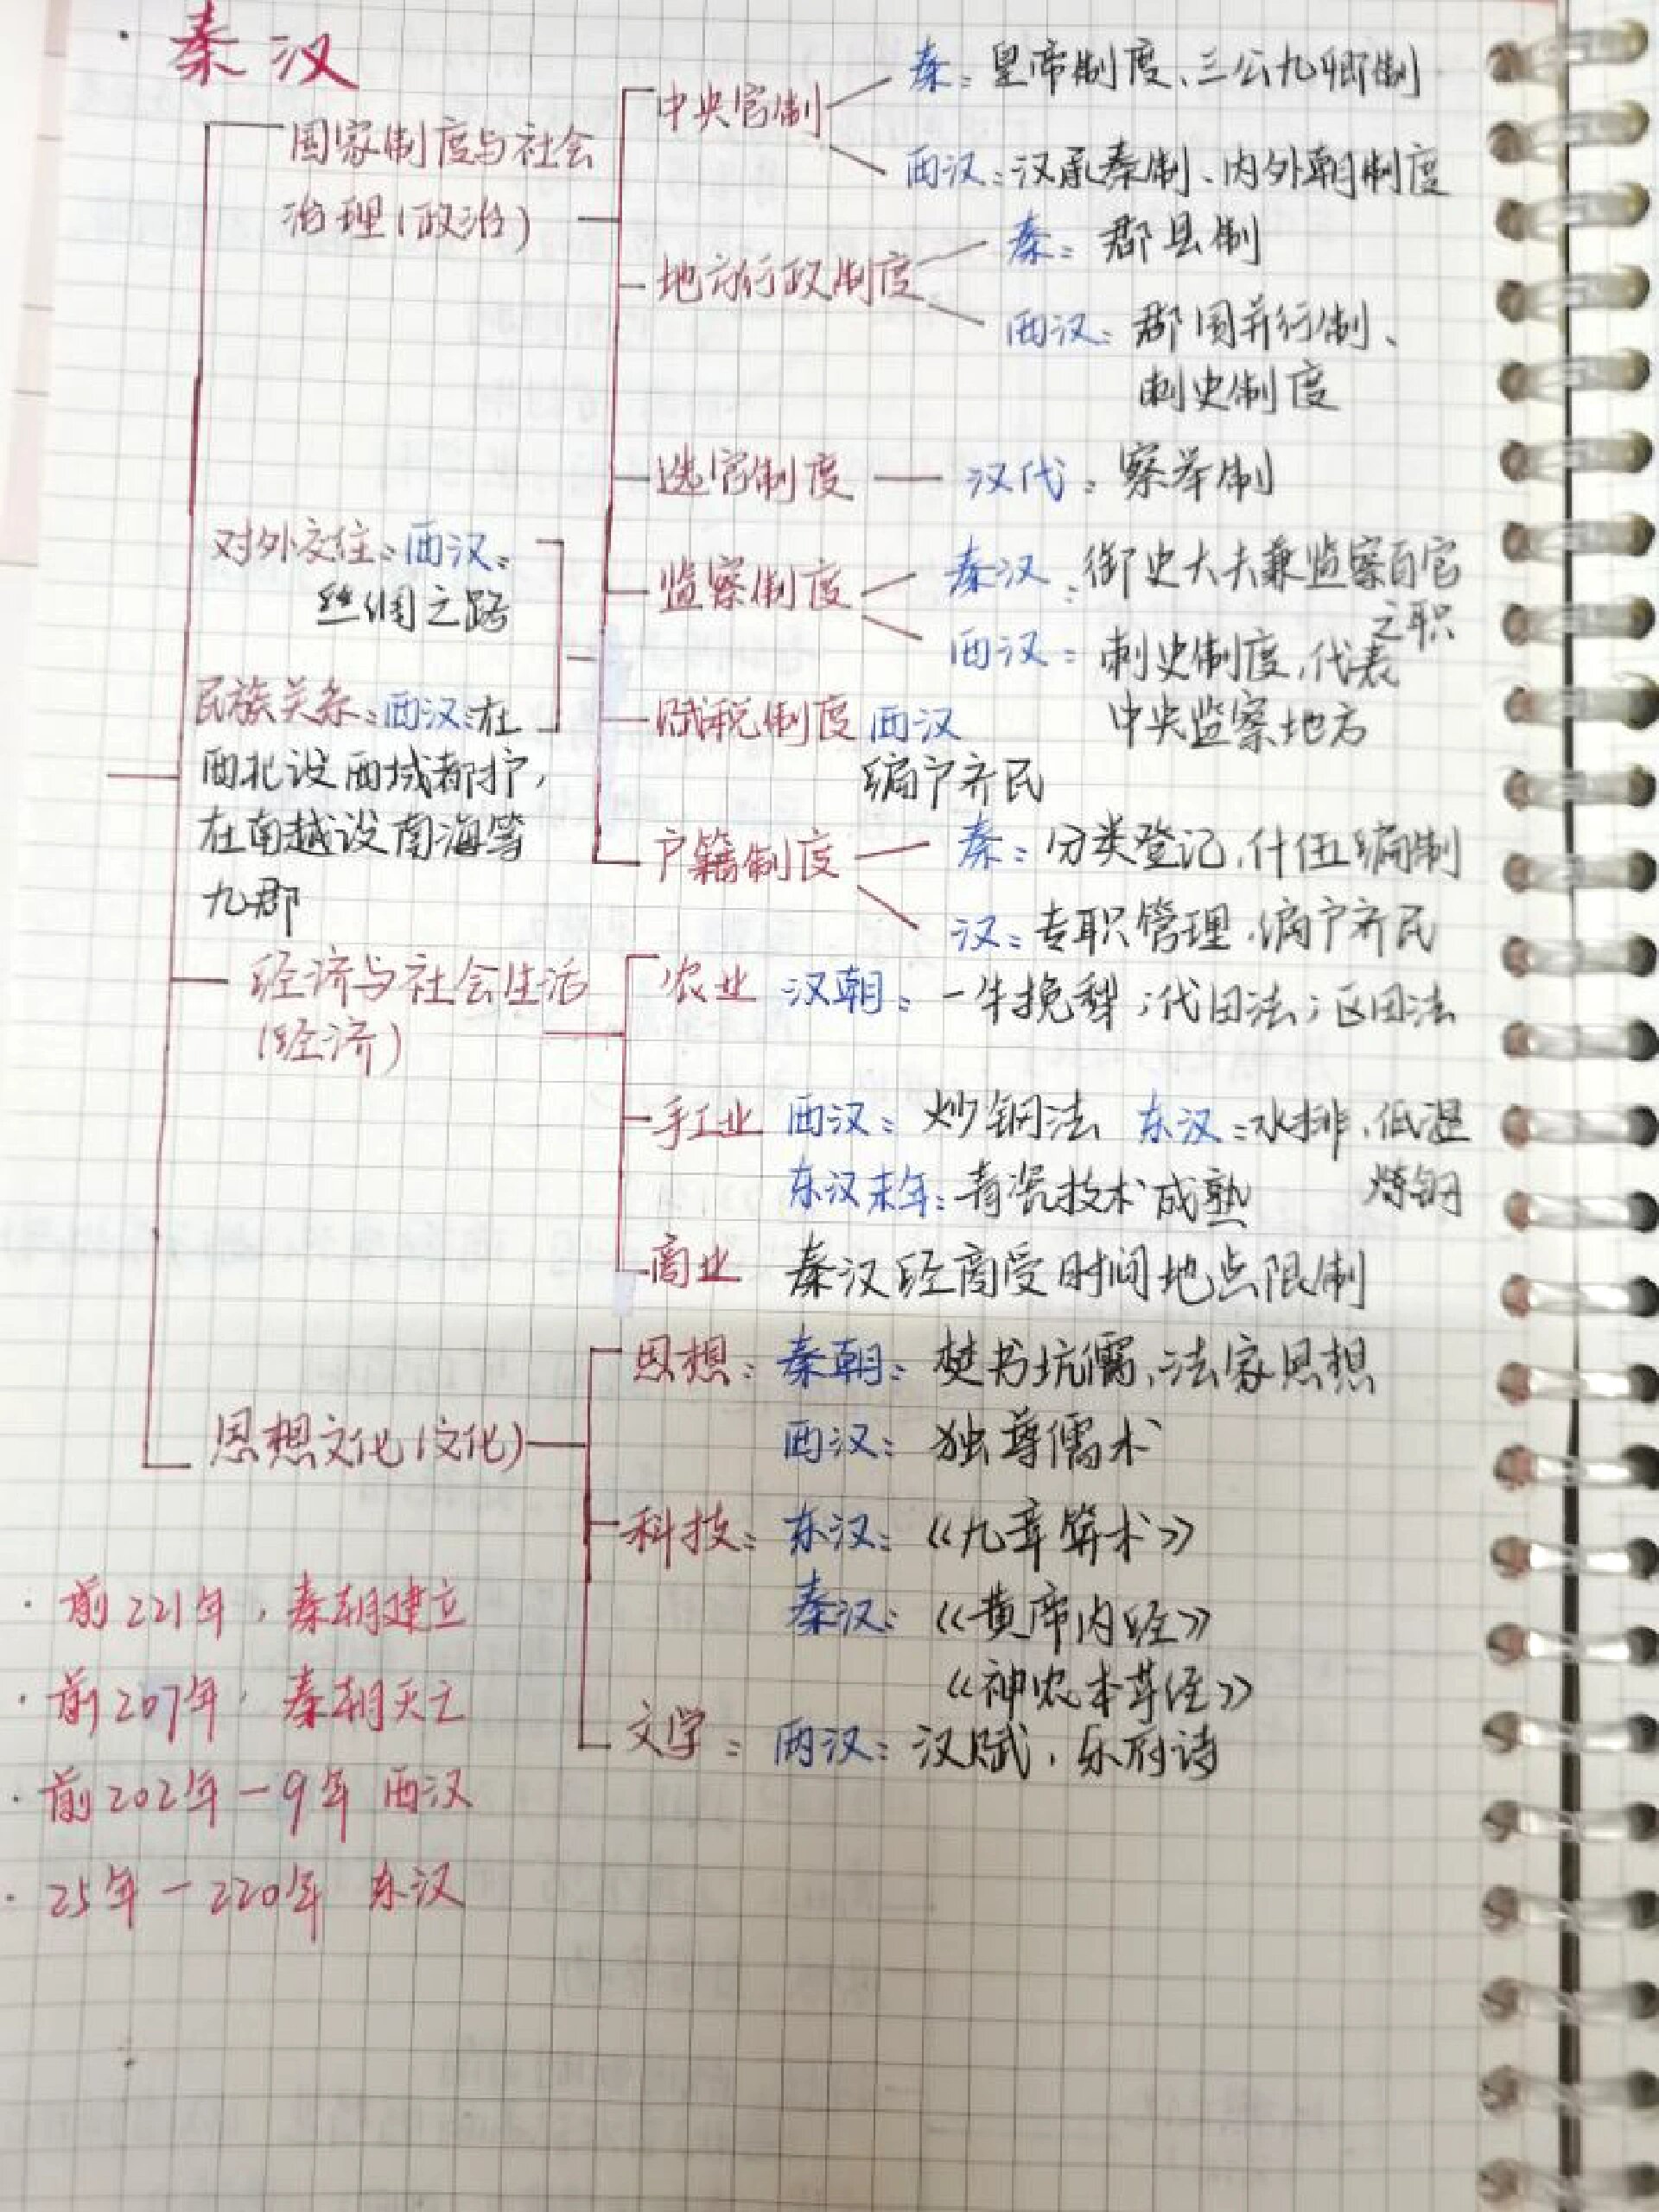 秦汉
国家制度与社会
治理(政治)
中央官制
秦：皇帝制度、三公九卿制
西汉：汉承秦制、内外朝制度
地方行政制度
秦：郡县制
西汉：郡国并行制、
刺史制度
选官制度 — 汉代：察举制
监察制度
秦汉：御史大夫兼监察百官
之职
西汉：刺史制度，代表
中央监察地方
赋税制度 西汉
编户齐民
户籍制度
秦：分类登记，什伍编制
汉：专职管理，编户齐民
对外交往：西汉：
丝绸之路
民族关系：西汉：在
西北设西域都护，
在南越设南海等
九郡
经济与社会生活
(经济)
农业 汉朝：一牛挽犁；代田法；区田法
手工业 西汉：炒钢法 东汉：水排，低温
炼钢
东汉末年：青瓷技术成熟
商业 秦汉经商受时间地点限制
思想文化(文化)
思想：秦朝：焚书坑儒，法家思想
西汉：独尊儒术
科技：东汉：《九章算术》
秦汉：《黄帝内经》
《神农本草经》
文学：两汉：汉赋，乐府诗
· 前221年，秦朝建立
· 前207年，秦朝灭亡
· 前202年－9年 西汉
· 25年－220年 东汉